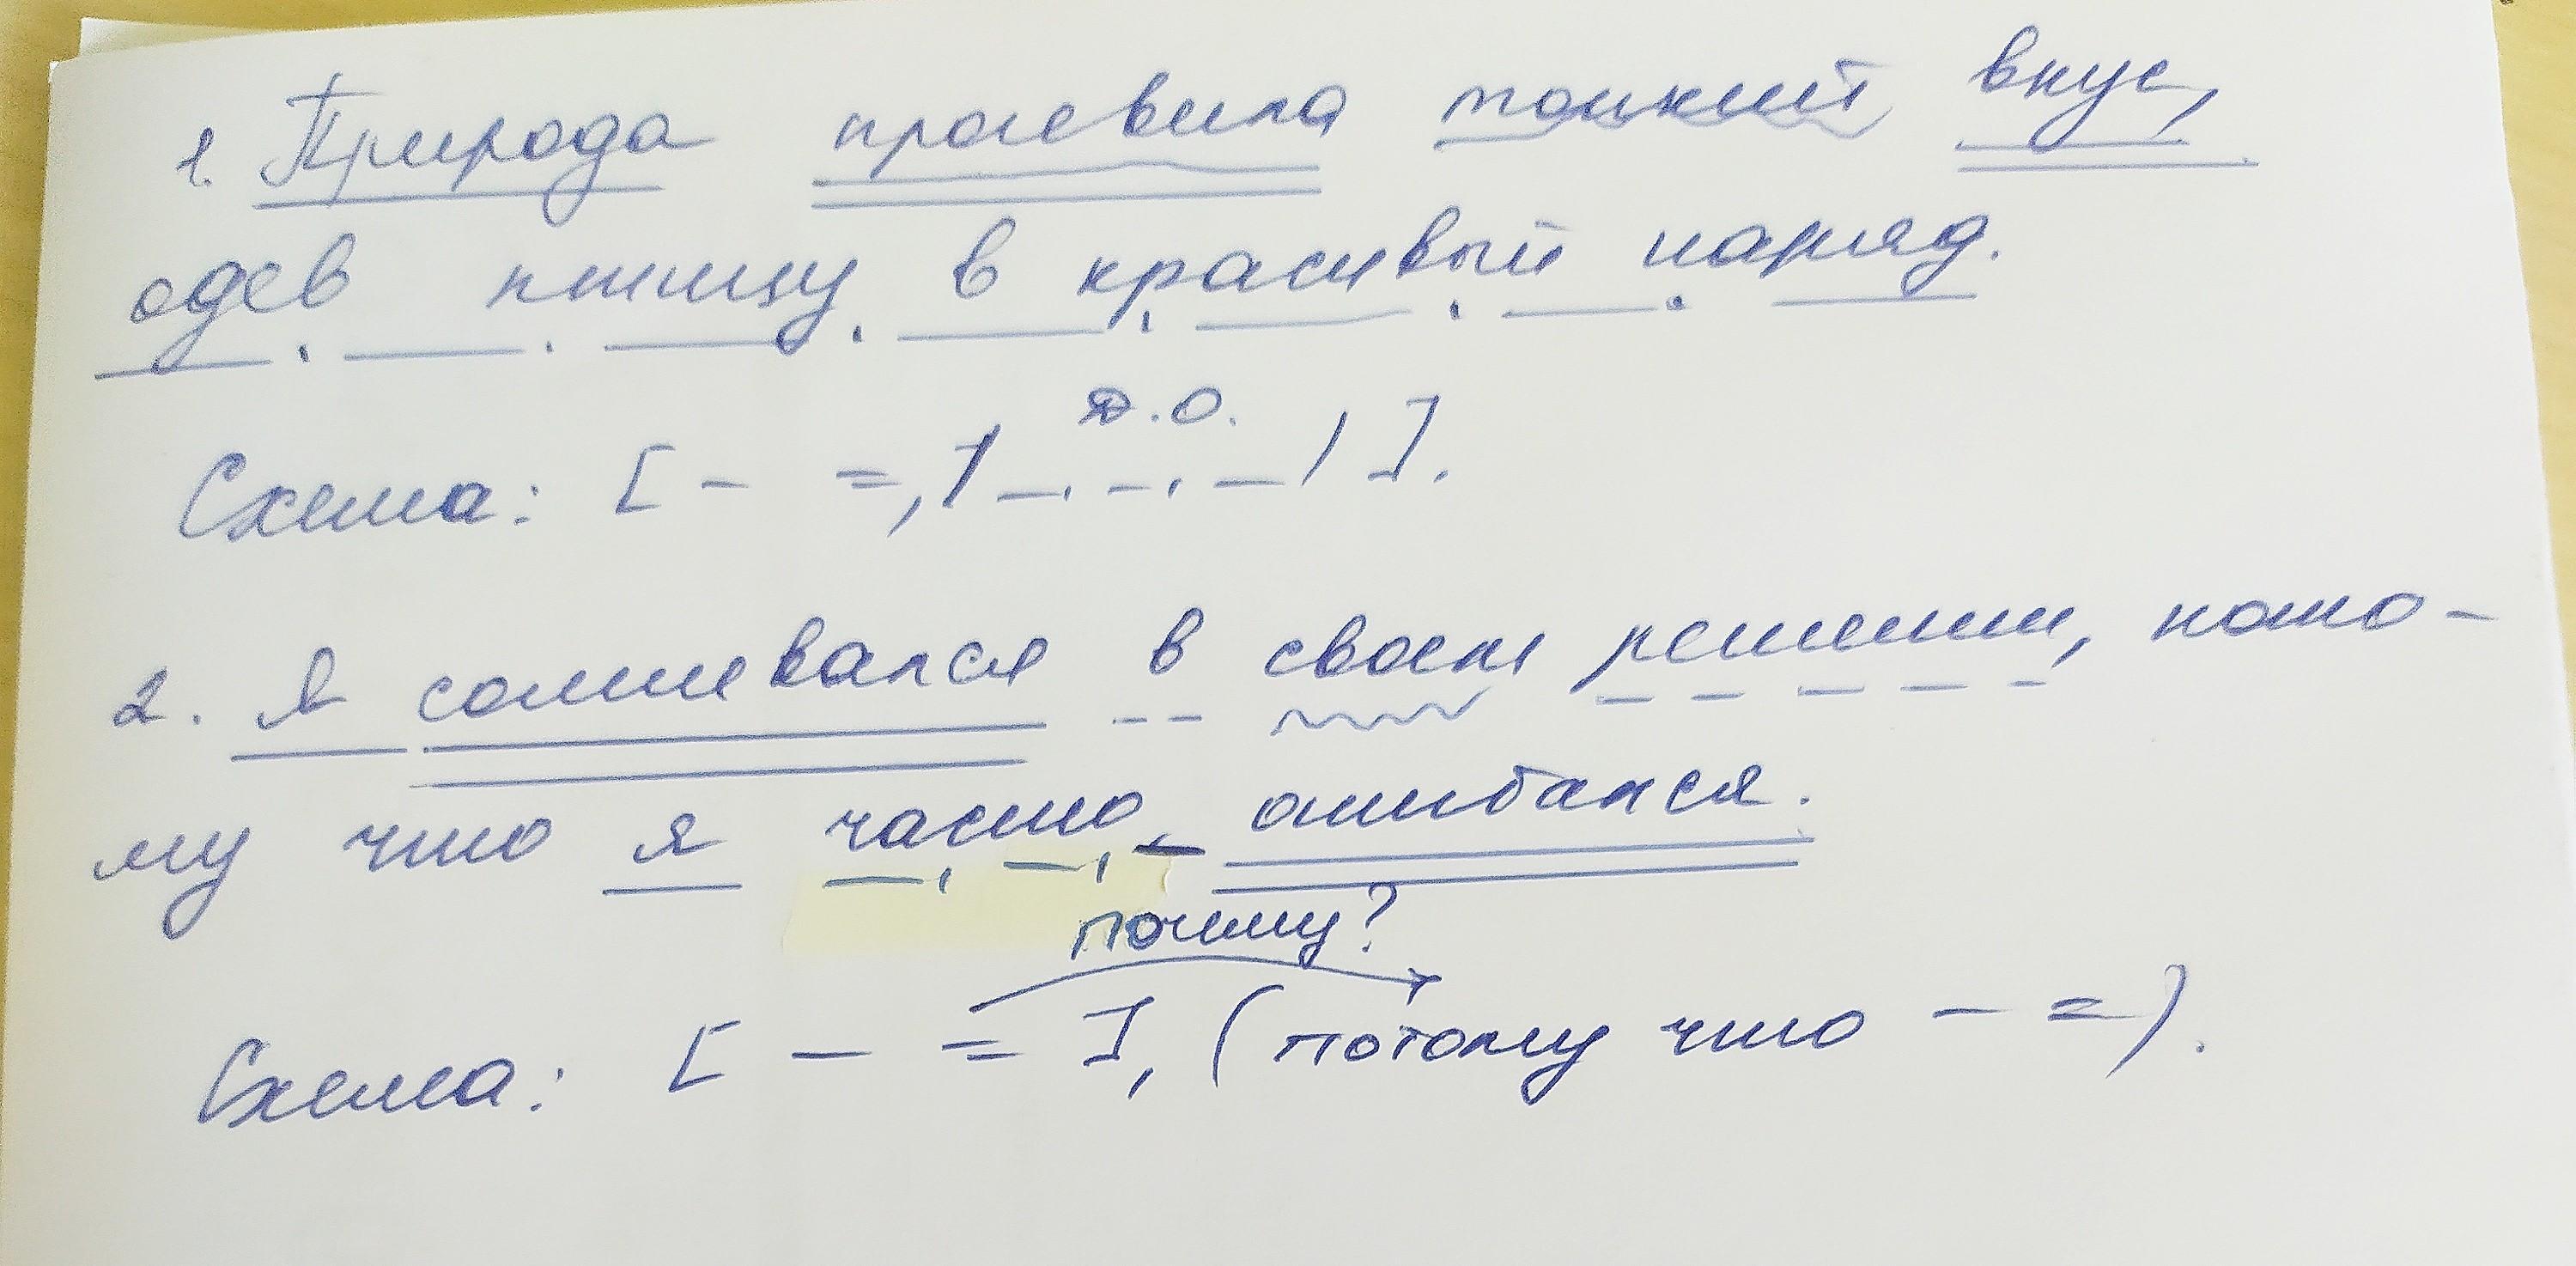 1. Природа проявила тонкий вкус,
одев птицу в красивый наряд.
д.о.
Схема: [ – =, /_._._/ ].
2. Я сомневался в своем решении, пото-
му что я часто ошибался.
почему?
Схема: [ – = ], (потому что – = ).